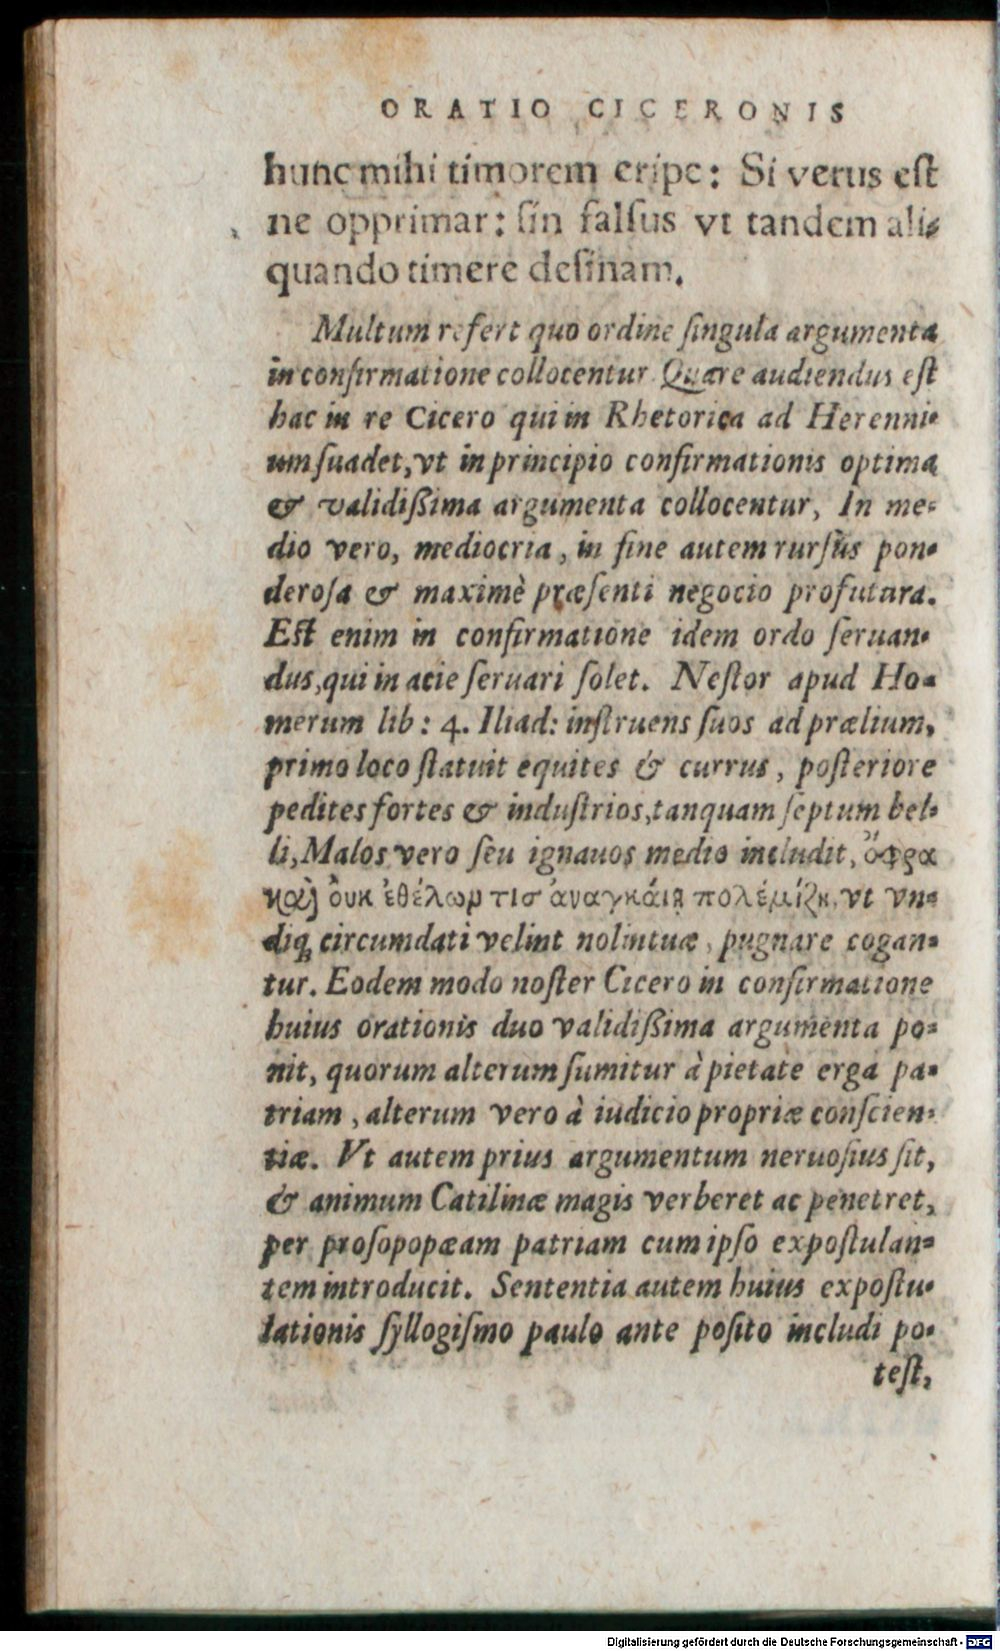 ORATIO CICERONIS
hunc mihi timorem eripe: Si verus eſt
ne opprimar: ſin falſus vt tandem ali⸗
quando timere deſinam.
Multum refert quo ordine ſingula argumenta
in confirmatione collocentur. Quare audiendus eſt
hac in re Cicero qui in Rhetorica ad Herenni⸗
um ſuadet, vt in principio confirmationis optima
& validißima argumenta collocentur, In me⸗
dio vero, mediocria, in fine autem rurſùs pon⸗
deroſa & maximè præſenti negocio profutura.
Eſt enim in confirmatione idem ordo ſeruan⸗
dus, qui in acie ſeruari ſolet. Neſtor apud Ho⸗
merum lib: 4. Iliad: inſtruens ſuos ad prælium,
primo loco ſtatuit equites & currus, poſteriore
pedites fortes & induſtrios, tanquam ſeptum bel⸗
li, Malos vero ſeu ignauos medio includit, ὄφρα
καὶ ὀυκ ἐθέλωμ τισ ἀναγκάιῃ πολέμίζῃ, vt vn⸗
diq́ circumdati velint nolintuæ, pugnare cogan⸗
tur. Eodem modo noſter Cicero in confirmatione
huius orationis duo validißima argumenta po⸗
nit, quorum alterum ſumitur à pietate erga pa⸗
triam, alterum vero à iudicio propriæ conſcien⸗
tiæ. Vt autem prius argumentum neruoſius ſit,
& animum Catilinæ magis verberet ac penetret,
per proſopopæam patriam cum ipſo expoſtulan⸗
tem introducit. Sententia autem huius expoſtu⸗
lationis ſyllogiſmo paulo ante poſito includi po⸗
teſt,
Digitalisierung gefördert durch die Deutsche Forschungsgemeinschaft - DFG